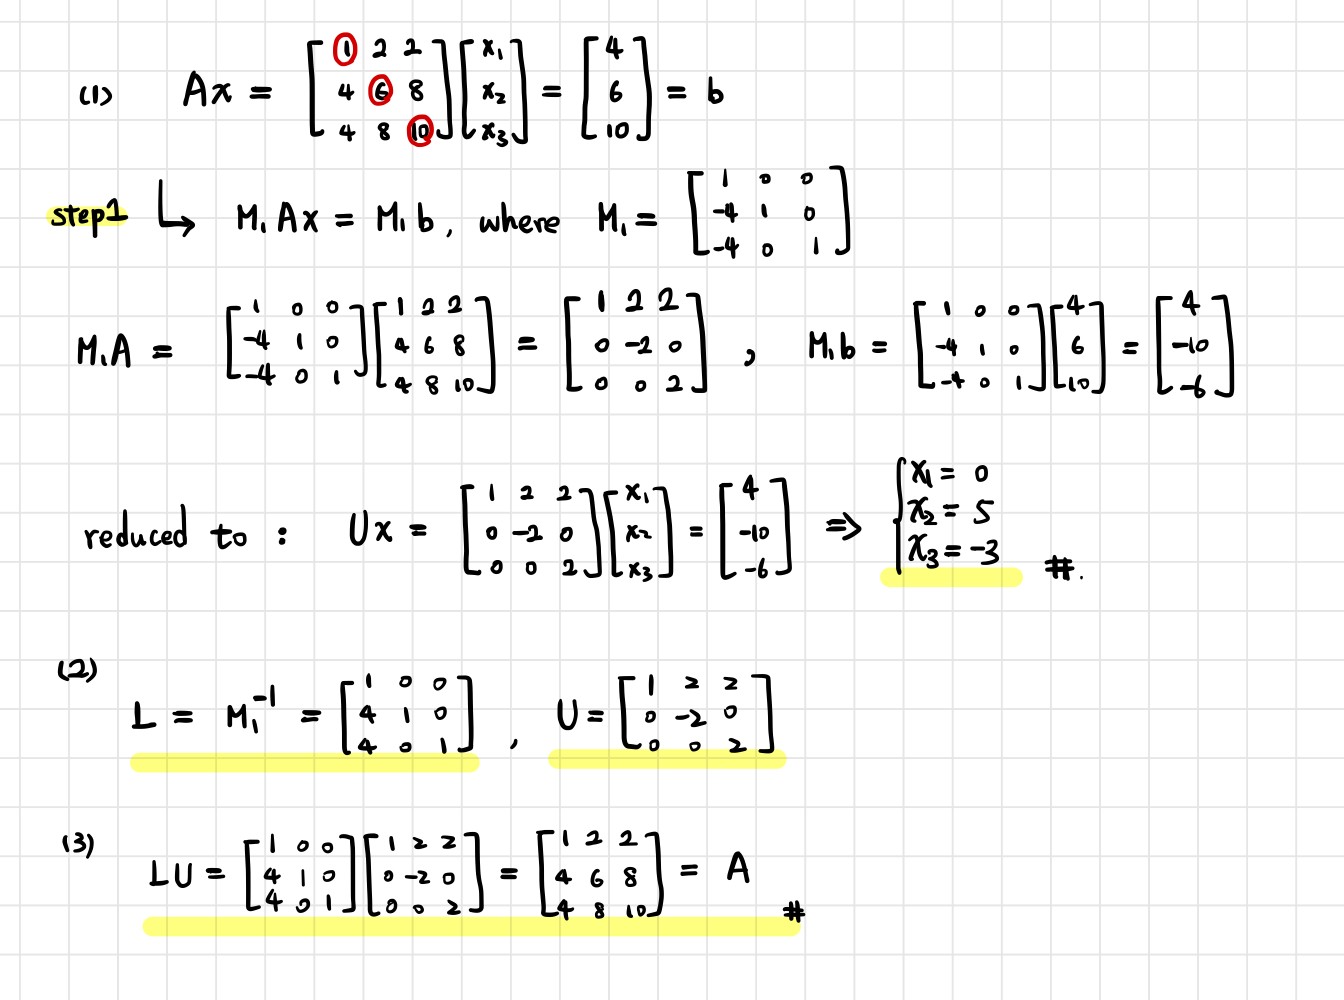 (1) Ax = [1 2 2; 4 6 8; 4 8 10] [x₁; x₂; x₃] = [4; 6; 10] = b
step1 ↳ M₁Ax = M₁b, where M₁ = [1 0 0; -4 1 0; -4 0 1]
M₁A = [1 0 0; -4 1 0; -4 0 1] [1 2 2; 4 6 8; 4 8 10] = [1 2 2; 0 -2 0; 0 0 2] , M₁b = [1 0 0; -4 1 0; -4 0 1] [4; 6; 10] = [4; -10; -6]
reduced to : Ux = [1 2 2; 0 -2 0; 0 0 2] [x₁; x₂; x₃] = [4; -10; -6] ⇒ { x₁ = 0; x₂ = 5; x₃ = -3 #.
(2)
L = M₁⁻¹ = [1 0 0; 4 1 0; 4 0 1] , U = [1 2 2; 0 -2 0; 0 0 2]
(3) LU = [1 0 0; 4 1 0; 4 0 1] [1 2 2; 0 -2 0; 0 0 2] = [1 2 2; 4 6 8; 4 8 10] = A #